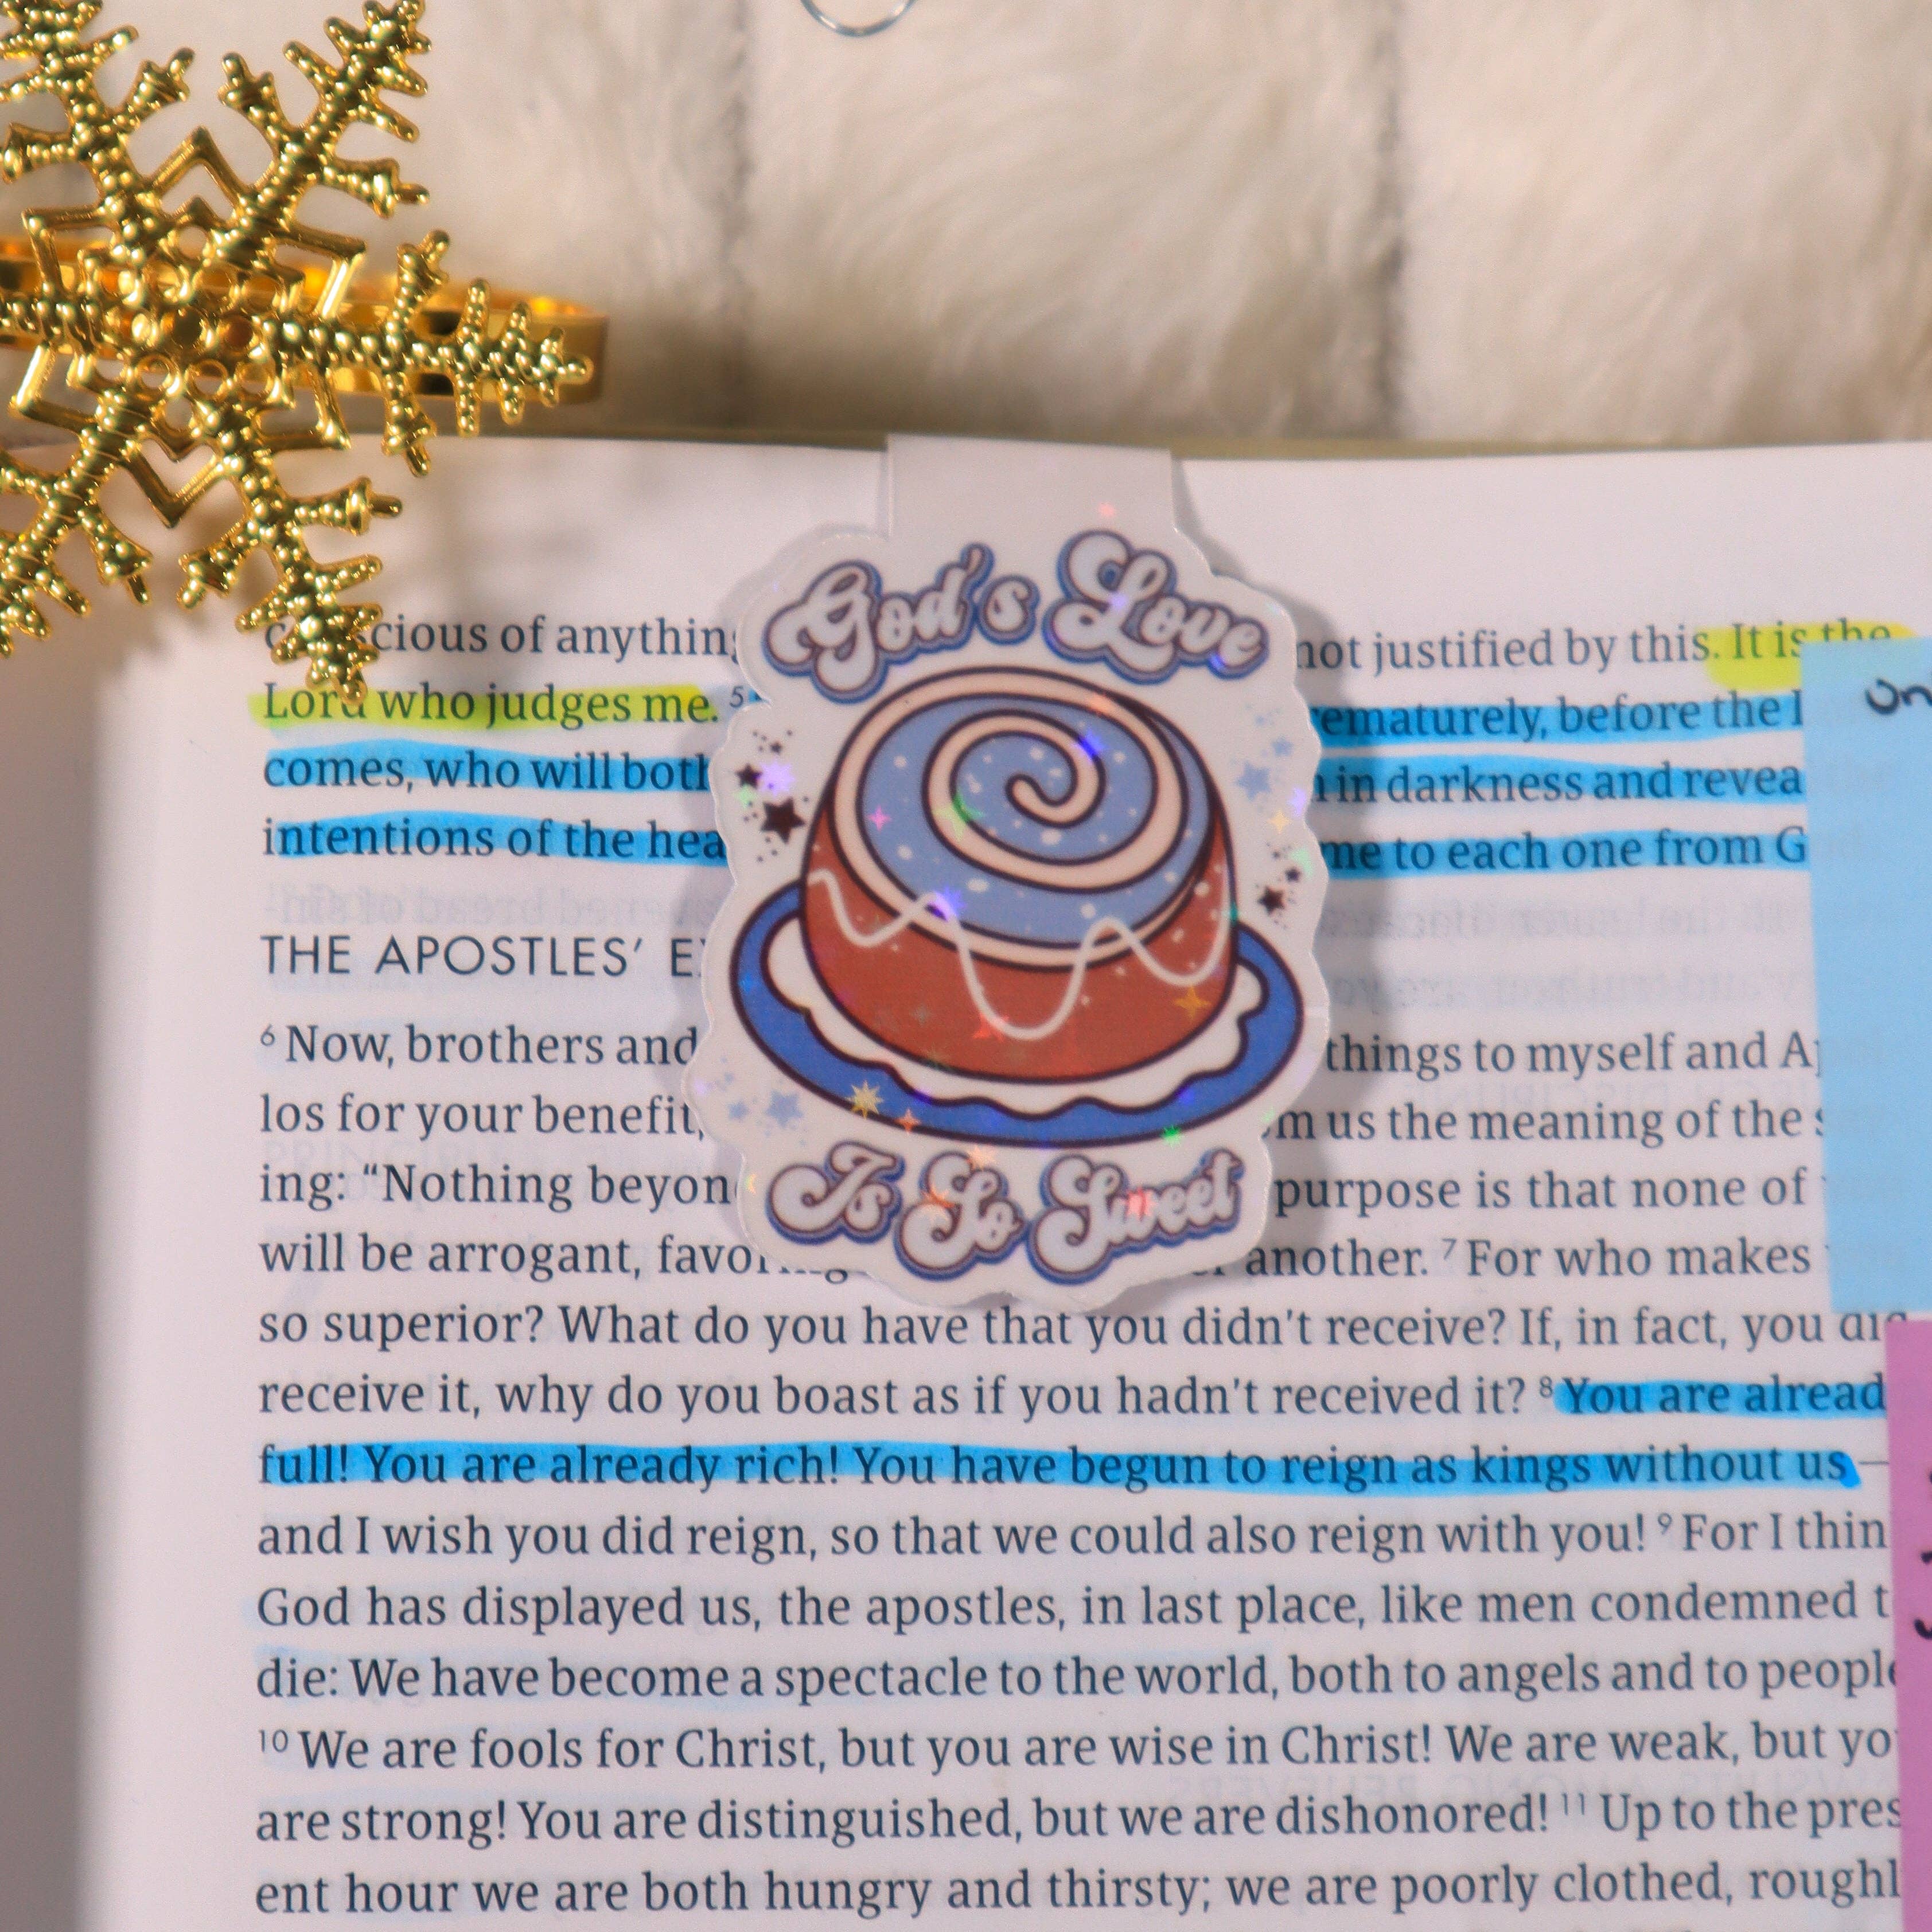 God's Love
Is So Sweet
cious of anything not justified by this. It is the
Lord who judges me. 5 rematurely, before the
comes, who will both in darkness and revea
intentions of the hea me to each one from G
THE APOSTLES' E
6 Now, brothers and things to myself and A
los for your benefit, m us the meaning of the
ing: “Nothing beyon purpose is that none of
will be arrogant, favoring another. 7 For who makes
so superior? What do you have that you didn't receive? If, in fact, you did
receive it, why do you boast as if you hadn't received it? 8 You are alread
full! You are already rich! You have begun to reign as kings without us—
and I wish you did reign, so that we could also reign with you! 9 For I thin
God has displayed us, the apostles, in last place, like men condemned t
die: We have become a spectacle to the world, both to angels and to people
10 We are fools for Christ, but you are wise in Christ! We are weak, but yo
are strong! You are distinguished, but we are dishonored! 11 Up to the pres
ent hour we are both hungry and thirsty; we are poorly clothed, roughl